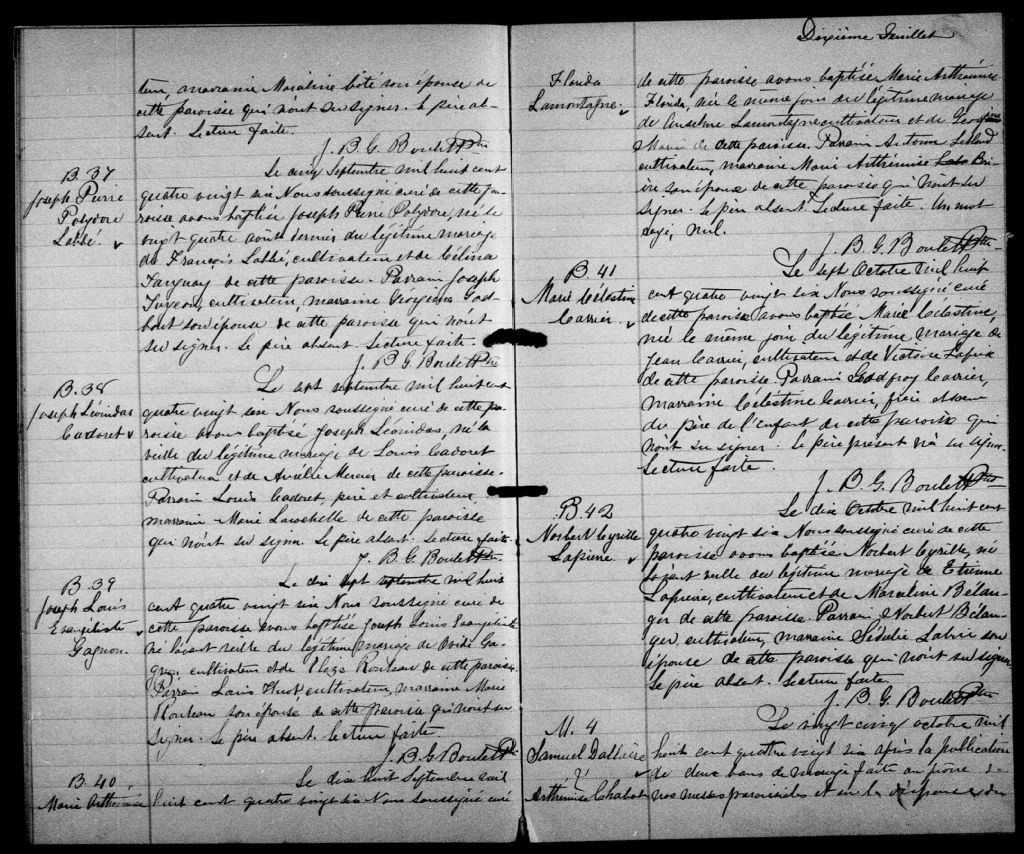 teur, marraine Marceline Coté son épouse de
cette paroisse qui n'ont su signer. Le père ab-
sent. Lecture faite.
J. B. G. Boulet Ptre
B. 37
Joseph Pierre
Polydore
Labbé.
Le cinq Septembre mil huit cent
quatre vingt six Nous soussigné curé de cette pa-
roisse avons baptisé Joseph Pierre Polydore, né le
vingt quatre août dernier du légitime mariage
de François Labbé, cultivateur et de Célina
de cette paroisse. Parrain Joseph
cultivateur, marraine Georgina God
bout son épouse de cette paroisse qui n'ont
su signer. Le père absent. Lecture faite.
J. B. G. Boulet Ptre
B. 38
Joseph Léonidas
Cadoret
Le sept septembre mil huit cent
quatre vingt six Nous soussigné curé de cette pa-
roisse avons baptisé Joseph Léonidas, né la
veille du légitime mariage de Louis Cadoret
cultivateur et de Aurélie Mercier de cette paroisse.
Parrain Louis Cadoret, père et cultivateur
marraine Marie Larochelle de cette paroisse
qui n'ont su signer. Le père absent. Lecture faite.
J. B. G. Boulet Ptre
B. 39
Joseph Louis
Evangéliste
Gagnon.
Le dix sept septembre mil huit
cent quatre vingt six Nous soussigné curé de
cette paroisse avons baptisé Joseph Louis Evangéliste
né l'avant veille du légitime mariage de Ovide Ga-
gnon, cultivateur et de Eliza Rouleau de cette paroisse.
Parrain Louis Huot, cultivateur, marraine Marie
Rouleau son épouse de cette paroisse qui n'ont su
signer. Le père absent. Lecture faite
J. B. G. Boulet Ptre
B. 40
Marie Arthémise
Le dix huit Septembre mil
huit cent quatre vingt six Nous soussigné curé
Dixième Feuillet
Florida
Lamontagne.
de cette paroisse avons baptisé Marie Arthémise
Florida, née le même jour du légitime mariage
de Anselme Lamontagne cultivateur et de
de cette paroisse. Parrain Antoine
cultivateur, marraine Marie Arthémise
son épouse de cette paroisse qui n'ont su
signer. Le père absent. Lecture faite. Un mot
rayé, nul.
J. B. G. Boulet Ptre
B. 41
Marie Célestine
Carrier.
Le sept Octobre mil huit
cent quatre vingt six Nous soussigné curé
de cette paroisse avons baptisé Marie Célestine,
née le même jour du légitime mariage de
Jean Carrier, cultivateur et de Victoire
de cette paroisse. Parrain Godfroy Carrier,
marraine Célestine Carrier, frère et soeur
du père de l'enfant de cette paroisse qui
n'ont su signer. Le père présent n'a su signer
Lecture faite.
J. B. G. Boulet Ptre
B. 42
Norbert Cyrille
Lapierre
Le dix Octobre mil huit cent
quatre vingt six Nous soussigné curé de cette
paroisse avons baptisé Norbert Cyrille, né
l'avant veille du légitime mariage de Etienne
Lapierre, cultivateur et de Marceline Bélan-
ger de cette paroisse. Parrain Norbert Bélan-
ger cultivateur, marraine Sédulie Labrie son
épouse de cette paroisse qui n'ont su signer
Le père absent. Lecture faite.
J. B. G. Boulet Ptre
M. 4
Samuel Dallaire
&
Arthémise Chabot
Le vingt cinq octobre mil
huit cent quatre vingt six après la publication
de deux bans de mariage faite au prône de
nos messes paroissiales et vu la dispense du